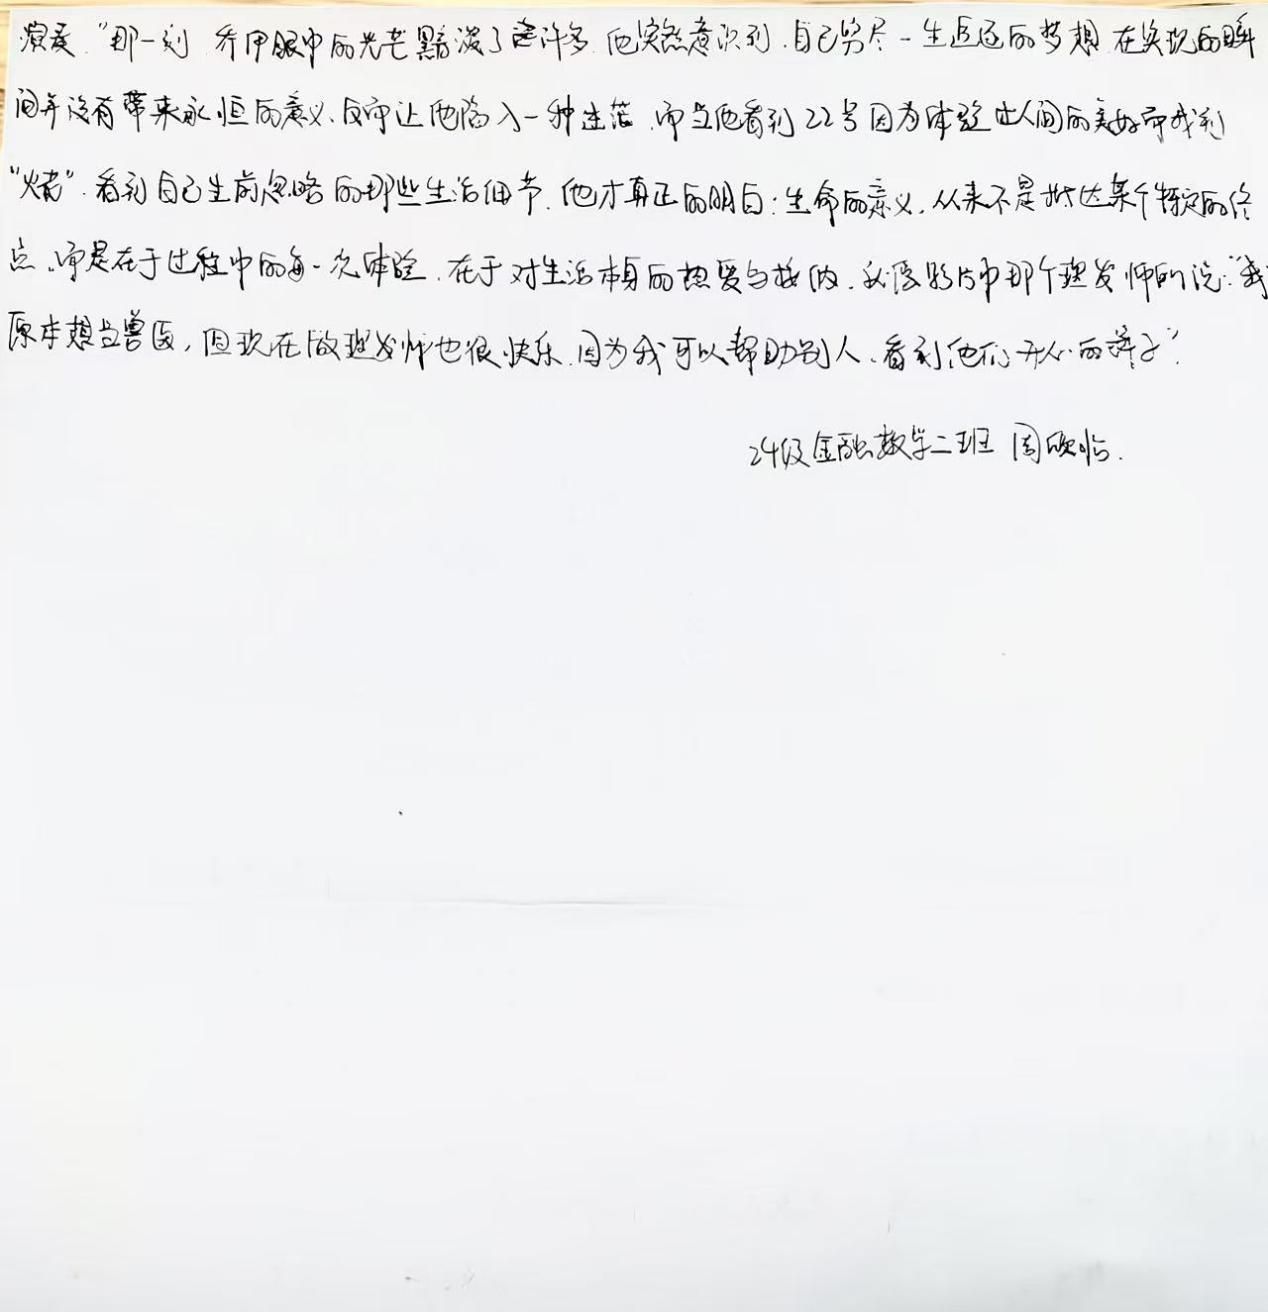 演奏."那一刻 乔伊眼中的光芒黯淡了许多.他突然意识到.自己穷尽一生追逐的梦想.在实现的瞬
间并没有带来永恒的意义、反而让他陷入一种迷茫.而当他看到22号因为体验世人间的美好而找到
"火花".看到自己生前忽略的那些生活细节.他才真正的明白:生命的意义.从来不是抵达某个特定的终
点、而是在于过程中的每一次体验.在于对生活本身的热爱与接纳.影片中那个理发师所说:"我
原本想当兽医,但现在做理发师也很快乐.因为我可以帮助别人、看到他们开心的样子".
24级金融数学二班 周欣怡.